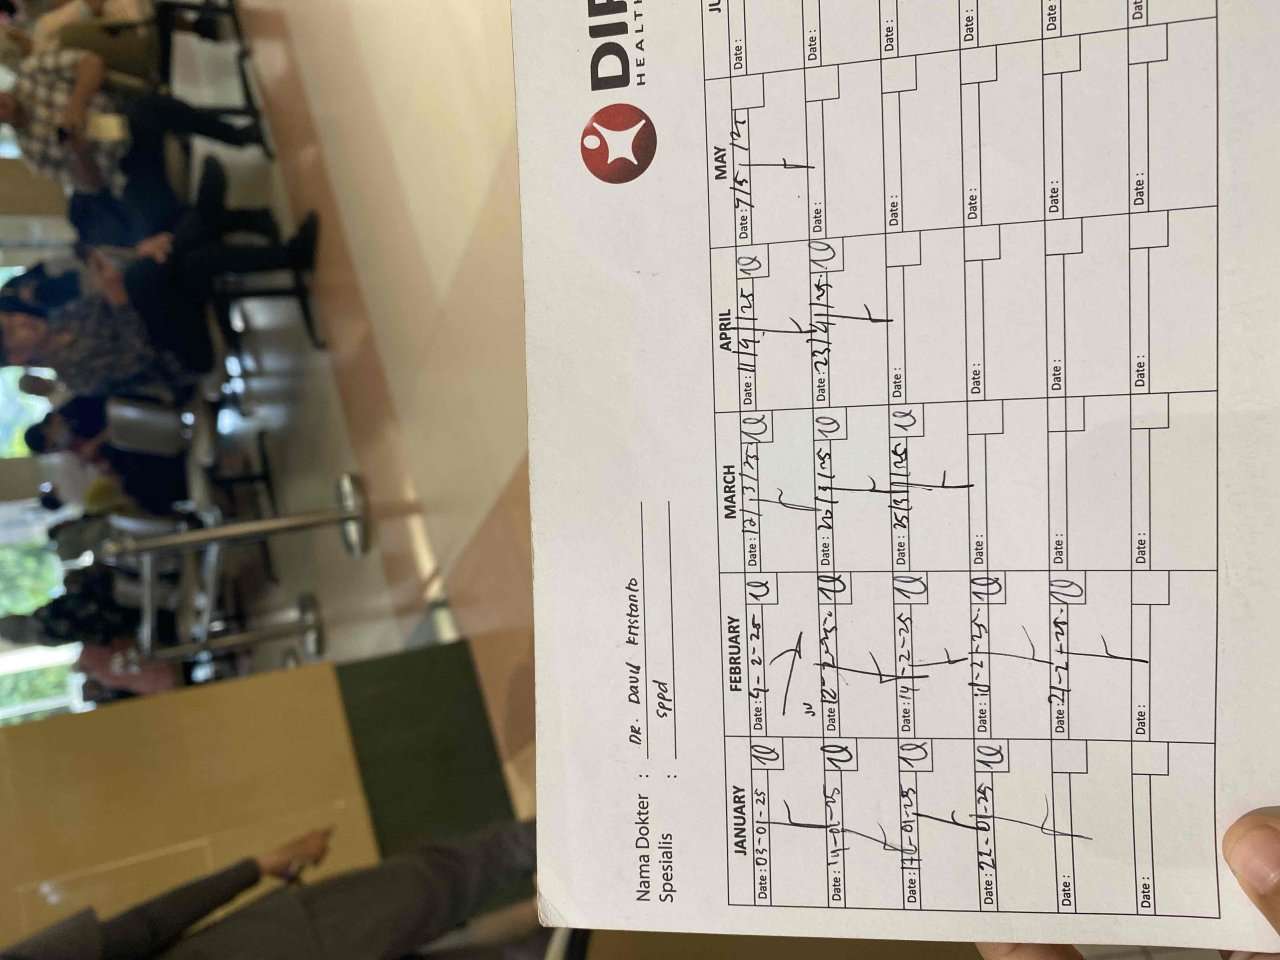 HEALTH
Nama Dokter : DR. David Kristanto
Spesialis : sppd
JANUARY FEBRUARY MARCH APRIL MAY
Date: 03-01-25 Date: 4-2-25 Date: 12/3/25 Date: 11/4/25 Date: 7/5/25 Date:
Date: 14-01-25 Date: 12-2-25. Date: 20/3/25 Date: 23/4/25. Date: Date:
Date: Date: 14-2-25 Date: 25/3/25 Date: Date: Date:
Date: 22-01-25 Date: Date: Date: Date: Date:
Date: Date: 21-2-25. Date: Date: Date: Date
Date: Date: Date: Date: Date: Dat